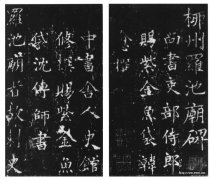 柳州羅池廟碑
尚書吏部侍郎
賜紫金魚袋韓
中書舍人史館
修撰賜紫金魚
袋沈傳師書
羅池廟者故刺史